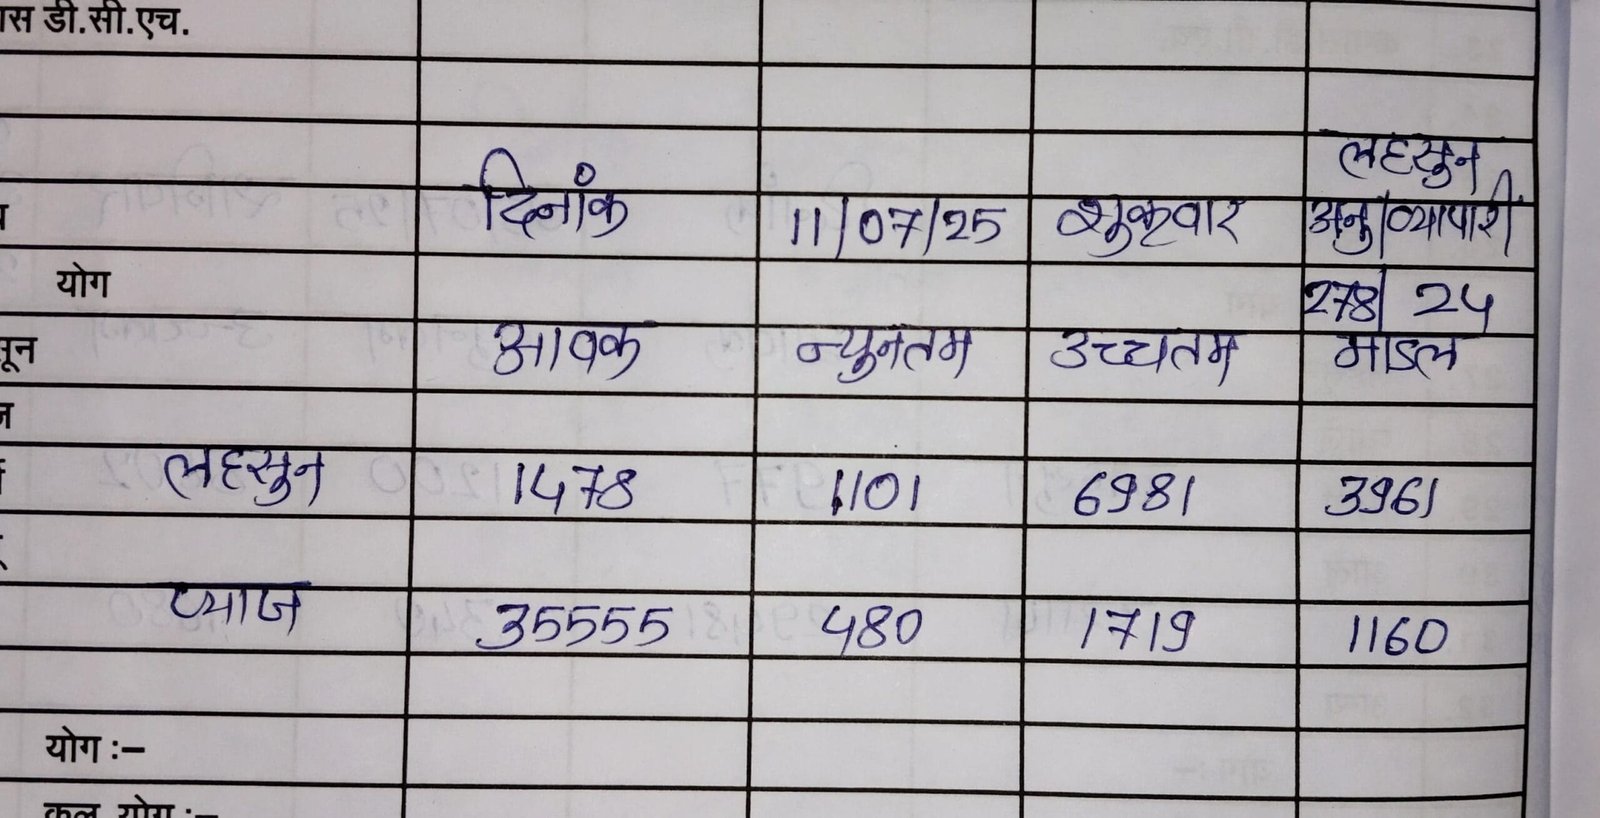 डी.सी.एच.
लहसुन
दिनांक 11/07/25 शुक्रवार अनु/व्यापारी
योग 278/ 24
आवक न्युनतम उच्चतम माडल
लहसुन 1478 1101 6981 3961
प्याज 35555 480 1719 1160
योग :-
कुल योग :-